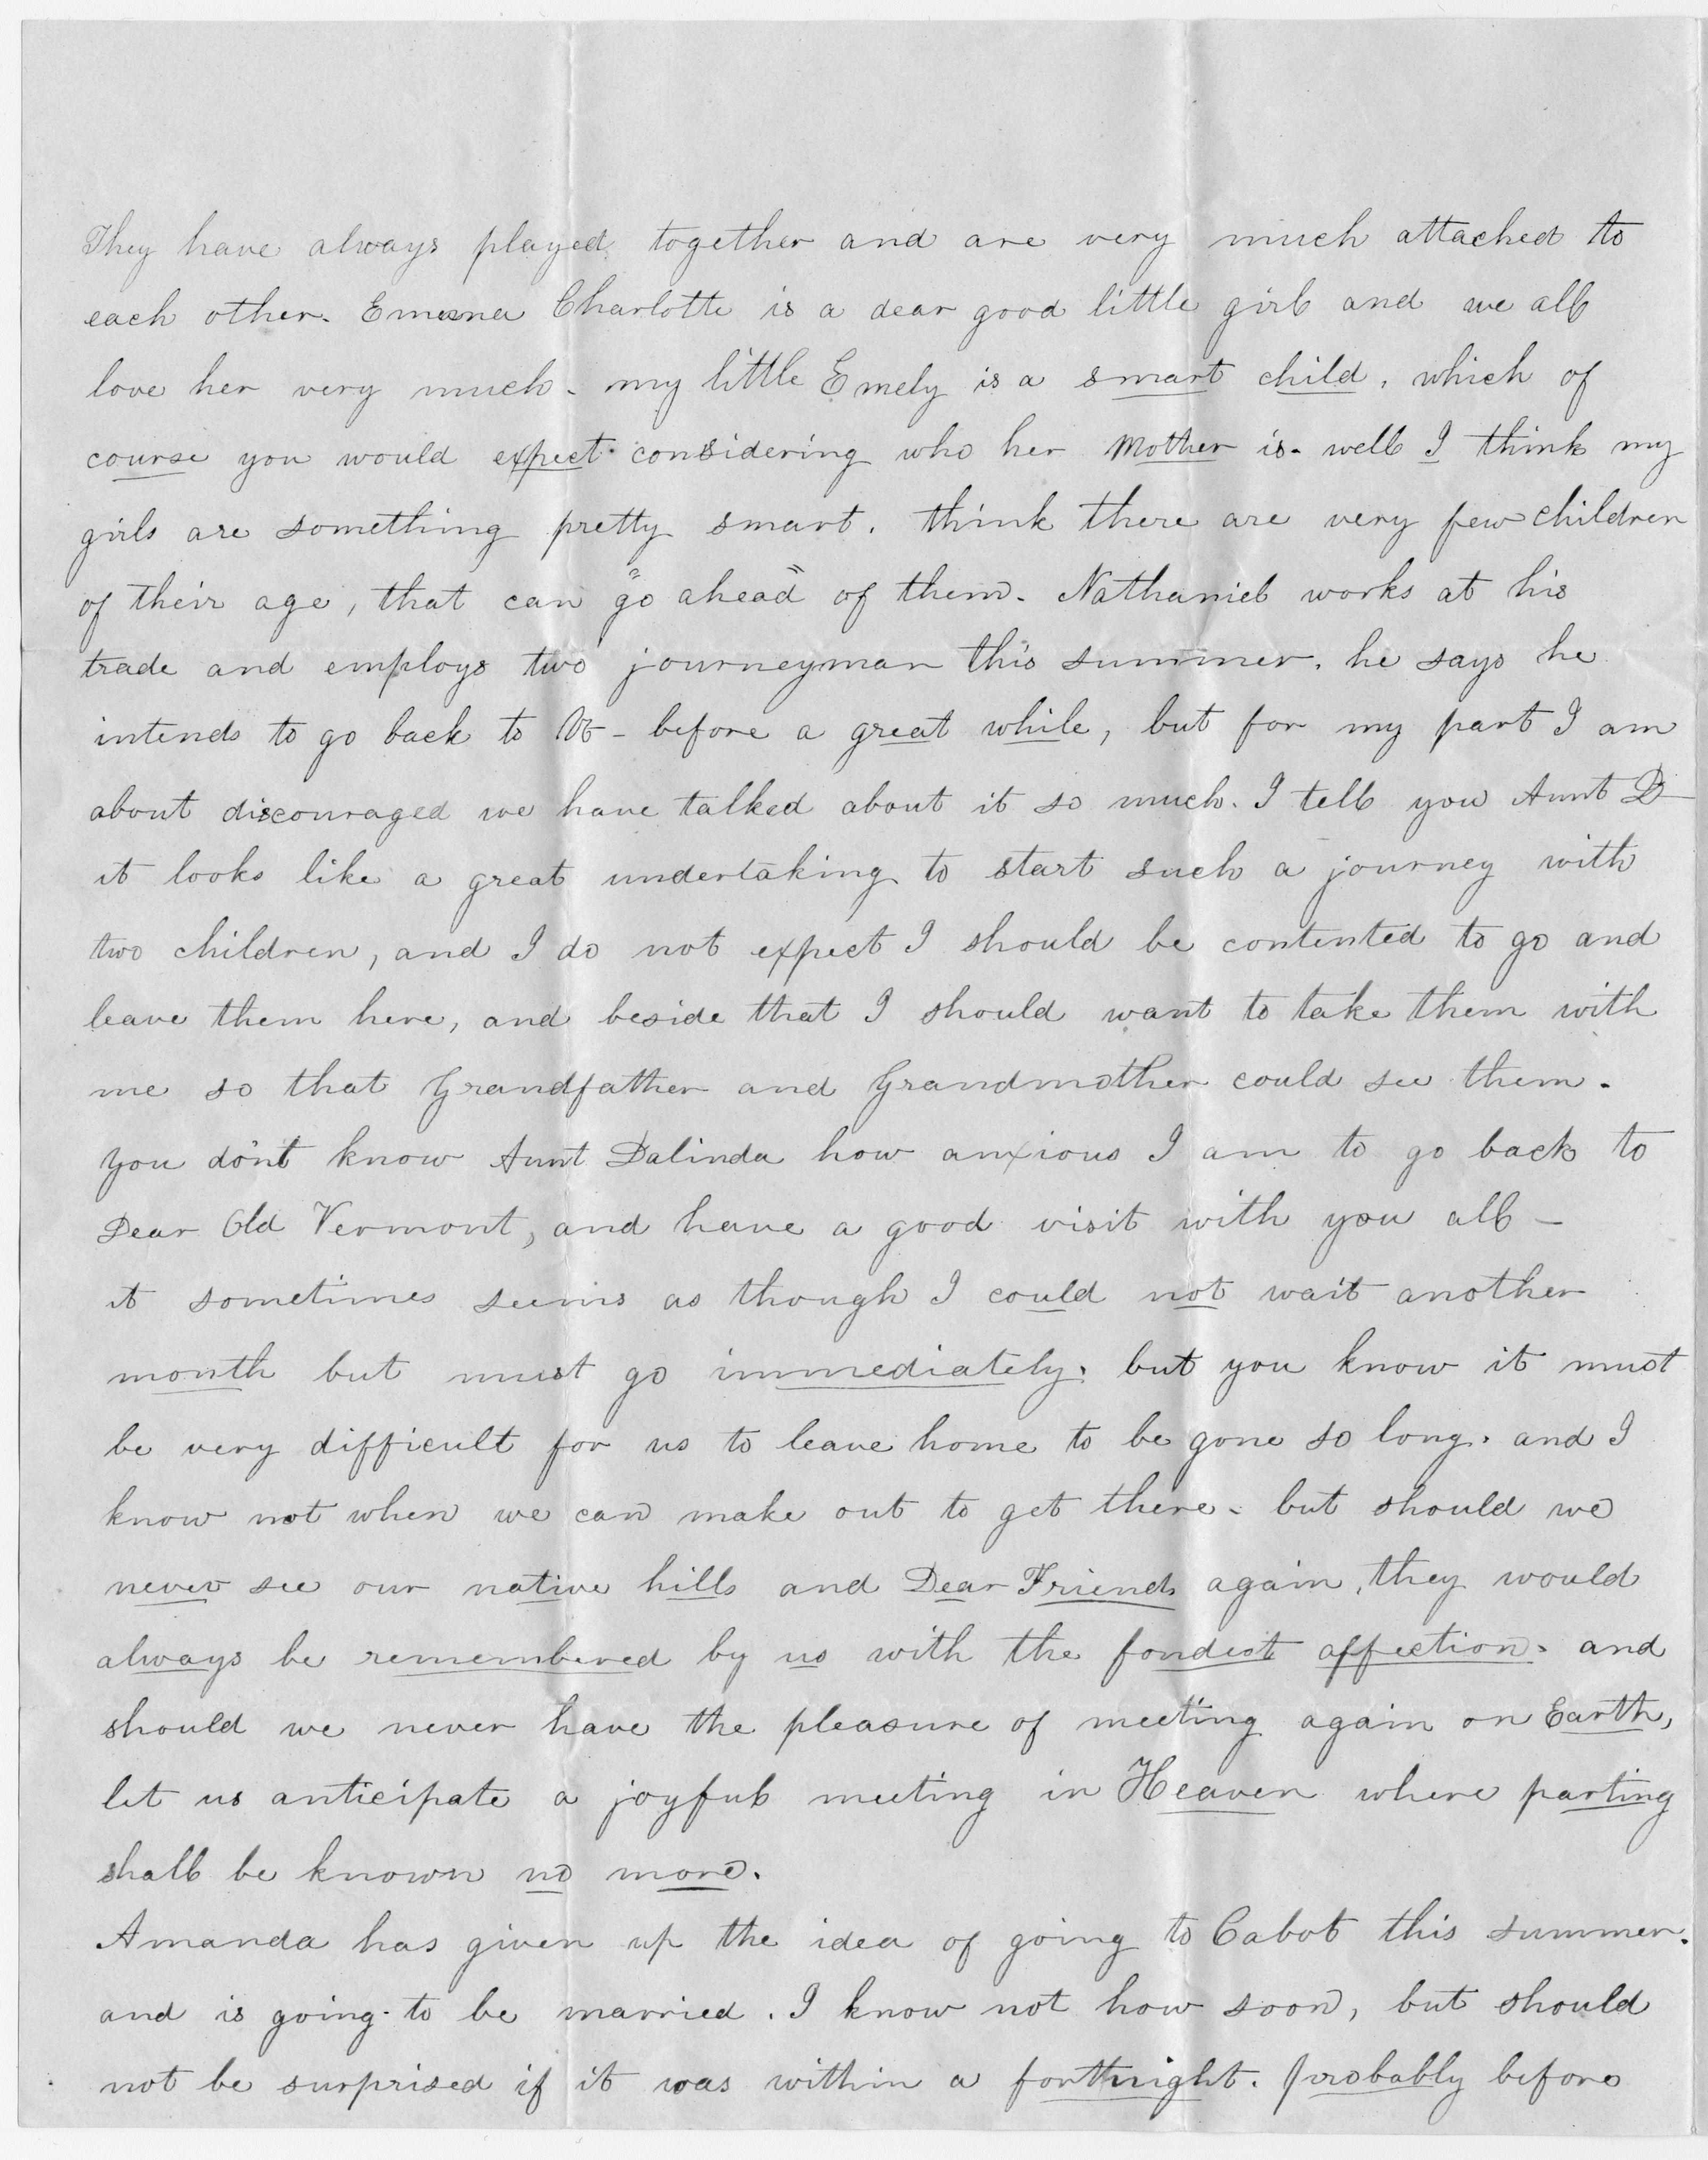 They have always played together and are very much attached to
each other. Emma Charlotte is a dear good little girl and we all
love her very much - my little Emely is a smart child, which of
course you would expect considering who her Mother is - well I think my
girls are something pretty smart. think there are very few children
of their age, that can "go ahead" of them. Nathaniel works at his
trade and employs two journeyman this summer. he says he
intends to go back to Vt - before a great while, but for my part I am
about discouraged we have talked about it so much. I tell you Aunt D
it looks like a great undertaking to start such a journey with
two children, and I do not expect I should be contented to go and
leave them here, and beside that I should want to take them with
me so that Grandfather and Grandmother could see them.
You don't know Aunt Dalinda how anxious I am to go back to
Dear Old Vermont, and have a good visit with you all -
it sometimes seems as though I could not wait another
month but must go immediately. but you know it must
be very difficult for us to leave home to be gone so long. and I
know not when we can make out to get there - but should we
never see our native hills and Dear Friends again, they would
always be remembered by us with the fondest affection. and
should we never have the pleasure of meeting again on Earth,
let us anticipate a joyful meeting in Heaven where parting
shall be known no more.
Amanda has given up the idea of going to Cabot this summer.
and is going to be married. I know not how soon, but should
not be surprised if it was within a fortnight. probably before